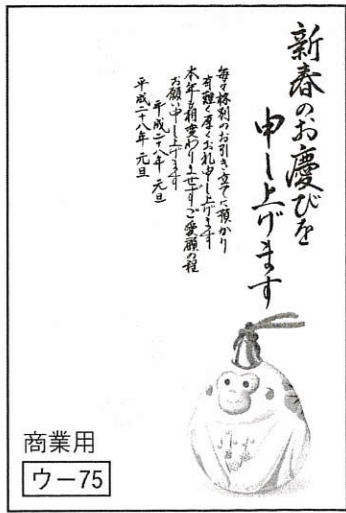 新春のお慶びを
申し上げます
毎々格別のお引き立てに預かり
有難く厚くお礼申し上げます
本年も相変わりませずご愛顧の程
お願い申し上げます
平成二十八年 元旦
平成二十八年 元旦
商業用
ウー75